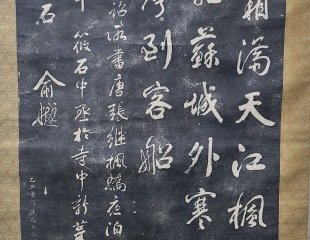 霜滿天江楓
蘇城外寒
到客船
詔所書唐張繼楓橋夜泊
筱石中丞於寺中新葺
石
俞樾